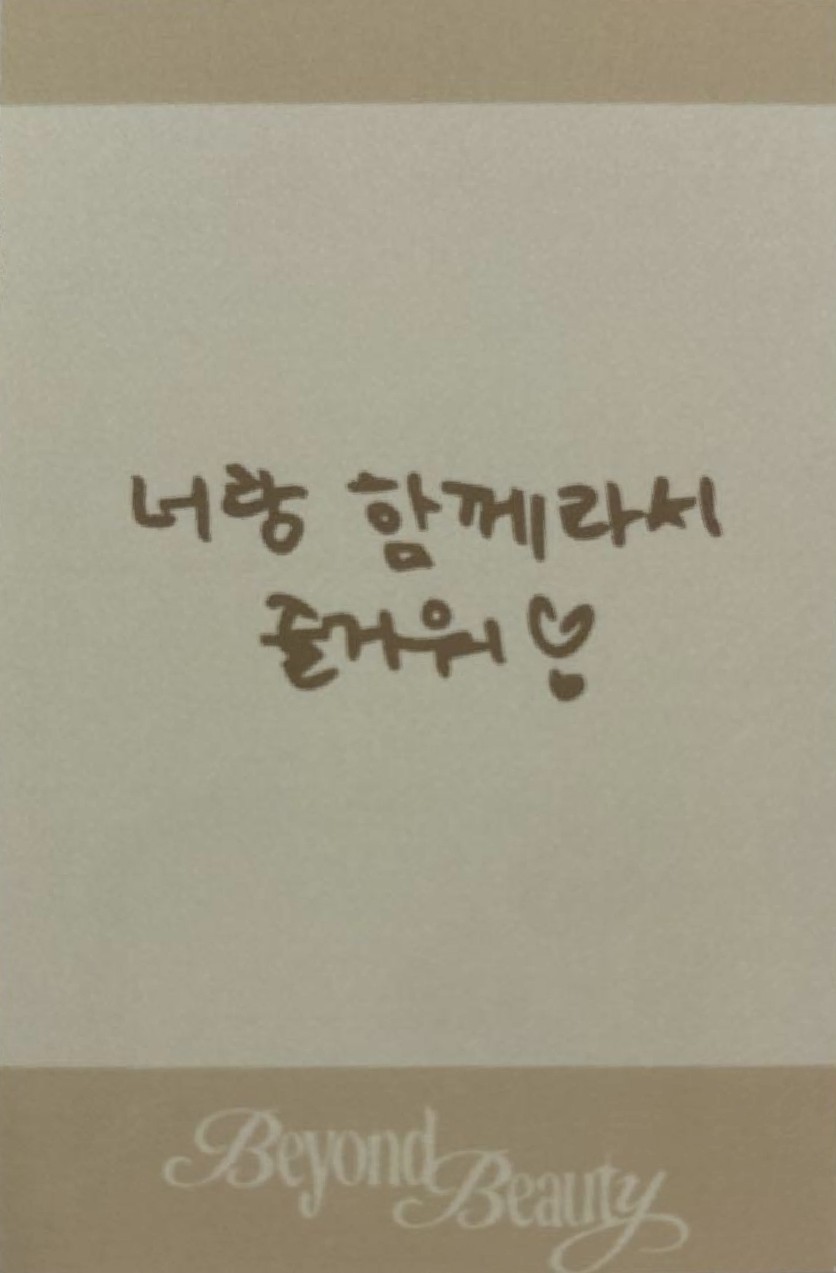 너랑 함께라서
즐거워♡
Beyond Beauty